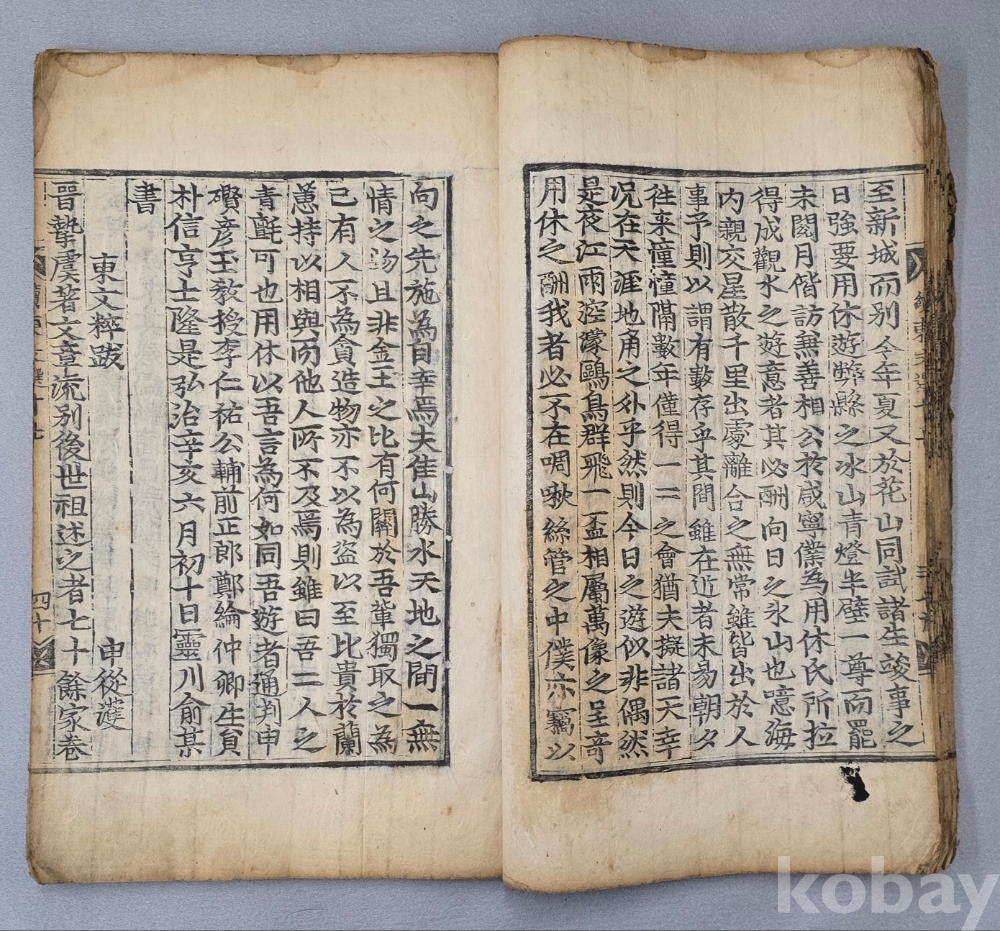 至新城而别今年夏又於花山同試諸生竣事之
日強要用休遊弊縣之冰山青燈半壁一尊而罷
未閱月偕訪無善相公於咸寧僕為用休氏所拉
得成觀水之遊意者其必酬向日之氷山也噫海
內親交星散千里出處離合之無常雖皆出於人
事予則以謂有數存乎其間雖在近者未易朝夕
徃来憧憧隔數年僅得一二之會猶夫擬諸天幸
况在天涯地角之外乎然則今日之遊似非偶然
是夜江雨涳濛鷗鳥群飛一盃相屬萬像之呈奇
用休之酬我者必不在啁啾絲管之中僕亦竊以
向之先施為自幸焉夫佳山勝水天地之間一無
情之物且非金玉之比有何關於吾軰獨取之為
己有人不為貪造物亦不以為盜以至比貴於蘭
蕙持以相與而他人所不及焉則雖曰吾二人之
青氈可也用休以吾言為何如同吾遊者通判申
礥彦玉敎授李仁祐公輔前正郎鄭綸仲卿生負
朴信亨士隆是弘治辛亥六月初十日靈川俞某
書
東文粹跋
申從濩
晋摯虞著文章流別後世祖述之者七十餘家卷
四十
kobay